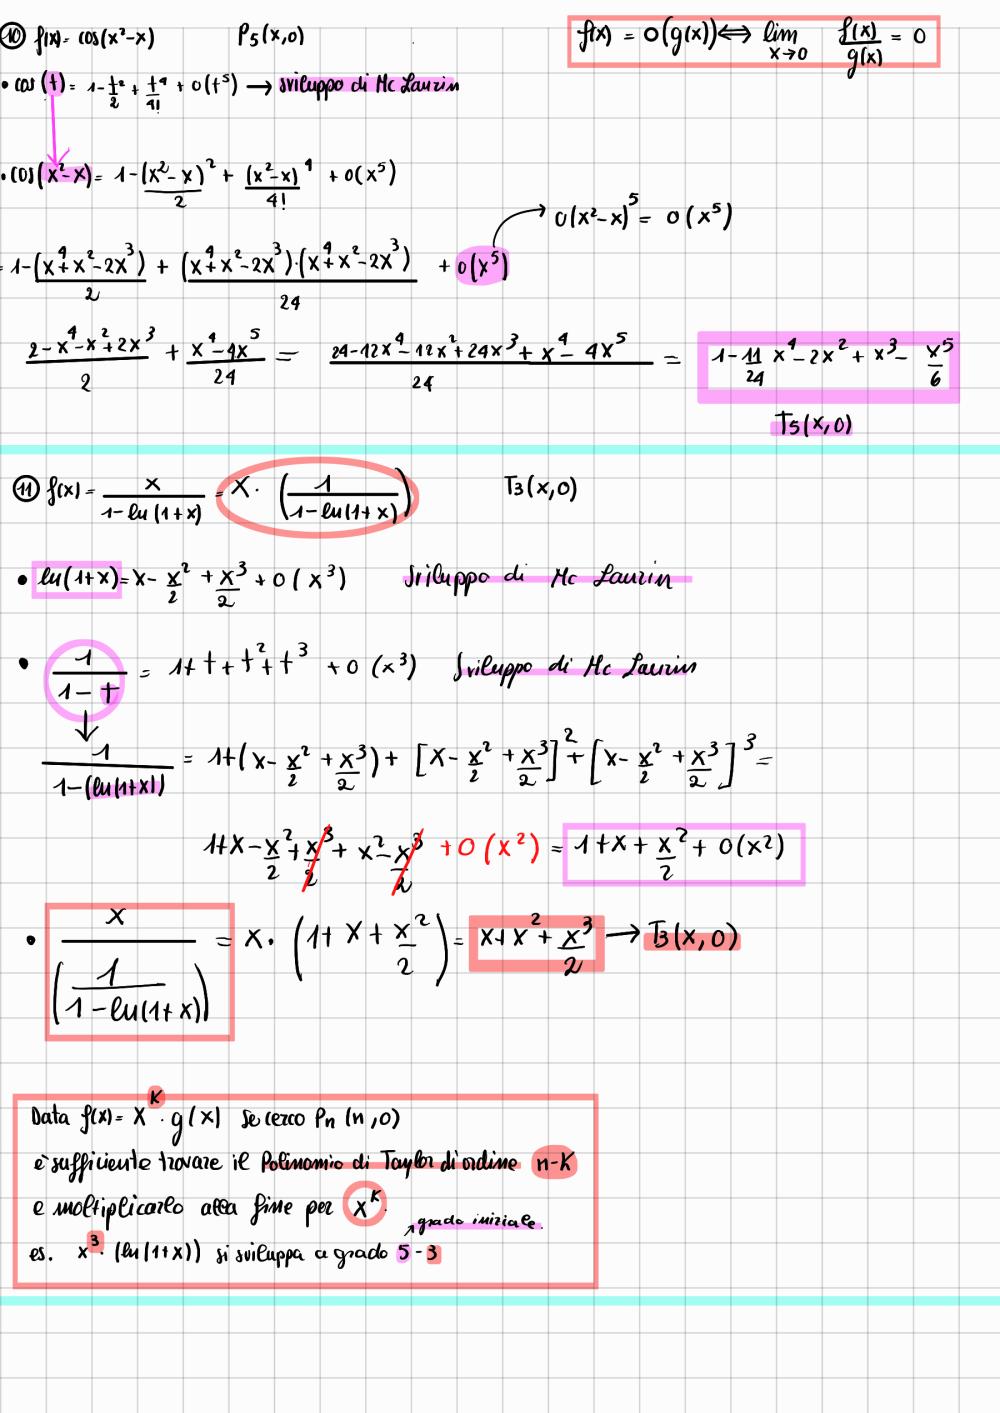 ⑩ f(x) = cos(x²-x) P₅(x,0) f(x) = o(g(x)) ⟺ lim x→0 f(x)/g(x) = 0
• cos(t) = 1 - t²/2 + t⁴/4! + o(t⁵) → sviluppo di Mc Laurin
• cos(x²-x) = 1 - (x²-x)²/2 + (x²-x)⁴/4! + o(x⁵)
o(x²-x)⁵ = o(x⁵)
= 1 - (x⁴+x²-2x³)/2 + (x⁴+x²-2x³)·(x⁴+x²-2x³)/24 + o(x⁵)
(2-x⁴-x²+2x³)/2 + (x⁴-4x⁵)/24 = (24-12x⁴-12x²+24x³+x⁴-4x⁵)/24 = 1 - 11/24 x⁴ - 2x² + x³ - x⁵/6
T₅(x,0)
⑪ f(x) = x/(1-ln(1+x)) = x · (1/(1-ln(1+x))) T₃(x,0)
• ln(1+x) = x - x²/2 + x³/2 + o(x³) Sviluppo di Mc Laurin
• 1/(1-t) = 1+t+t²+t³ + o(x³) Sviluppo di Mc Laurin
1/(1-(ln(1+x))) = 1+(x - x²/2 + x³/2) + [x - x²/2 + x³/2]² + [x - x²/2 + x³/2]³ =
1+x - x²/2 + x³/2 + x² - x³/2 + o(x²) = 1+x+x²/2 + o(x²)
• x/(1/(1-ln(1+x))) = x · (1+x+x²/2) = x+x²+x³/2 → T₃(x,0)
Data f(x) = xᴷ · g(x) se cerco Pₙ(n,0)
è sufficiente trovare il Polinomio di Taylor di ordine n-K
e moltiplicarlo alla fine per xᴷ.
↗ grado iniziale.
es. x³ · (ln(1+x)) si sviluppa a grado 5-3